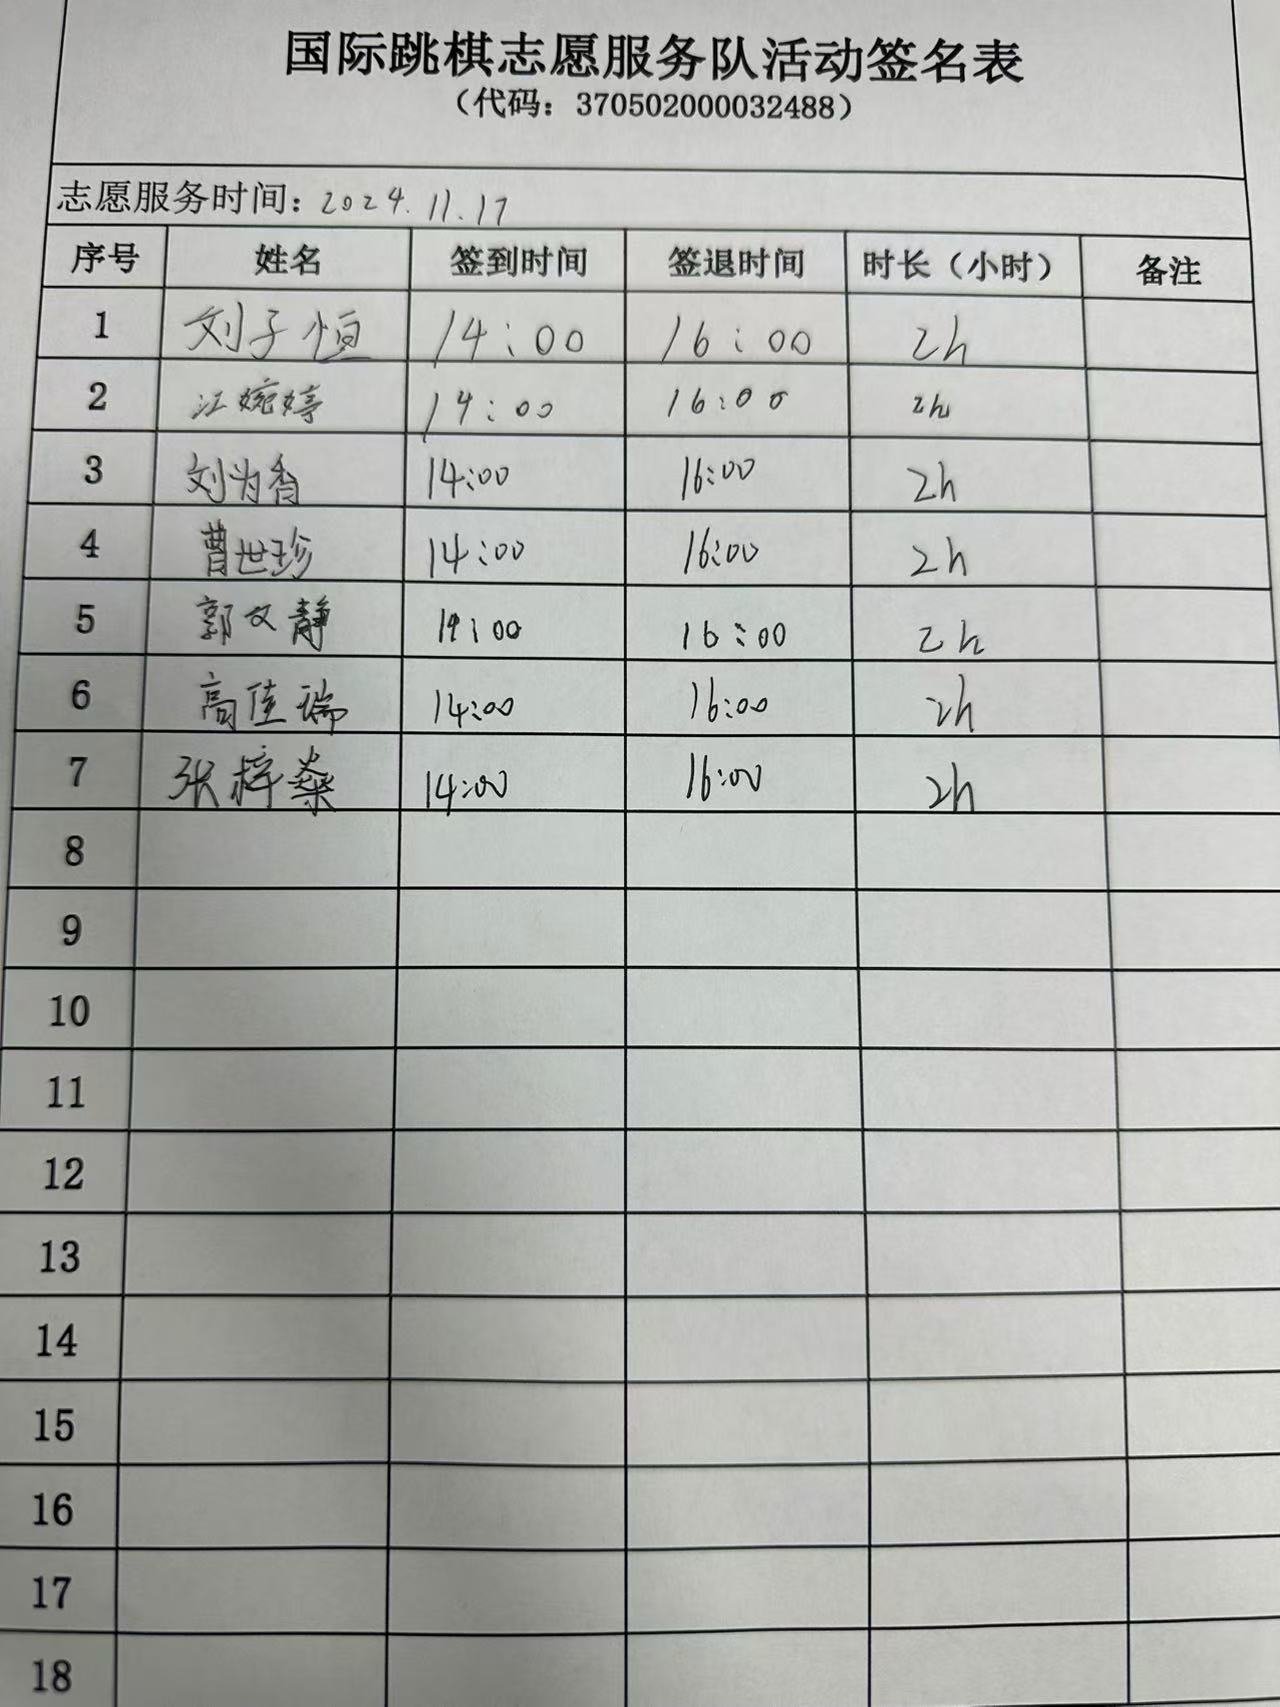 国际跳棋志愿服务队活动签名表
（代码：370502000032488）
志愿服务时间：2024.11.17
序号 姓名 签到时间 签退时间 时长（小时） 备注
1 刘子恒 14:00 16:00 2h
2 江婉婷 14:00 16:00 2h
3 刘为香 14:00 16:00 2h
4 曹世珍 14:00 16:00 2h
5 郭文静 14:00 16:00 2h
6 高佳瑞 14:00 16:00 2h
7 张梓燊 14:00 16:00 2h
8
9
10
11
12
13
14
15
16
17
18